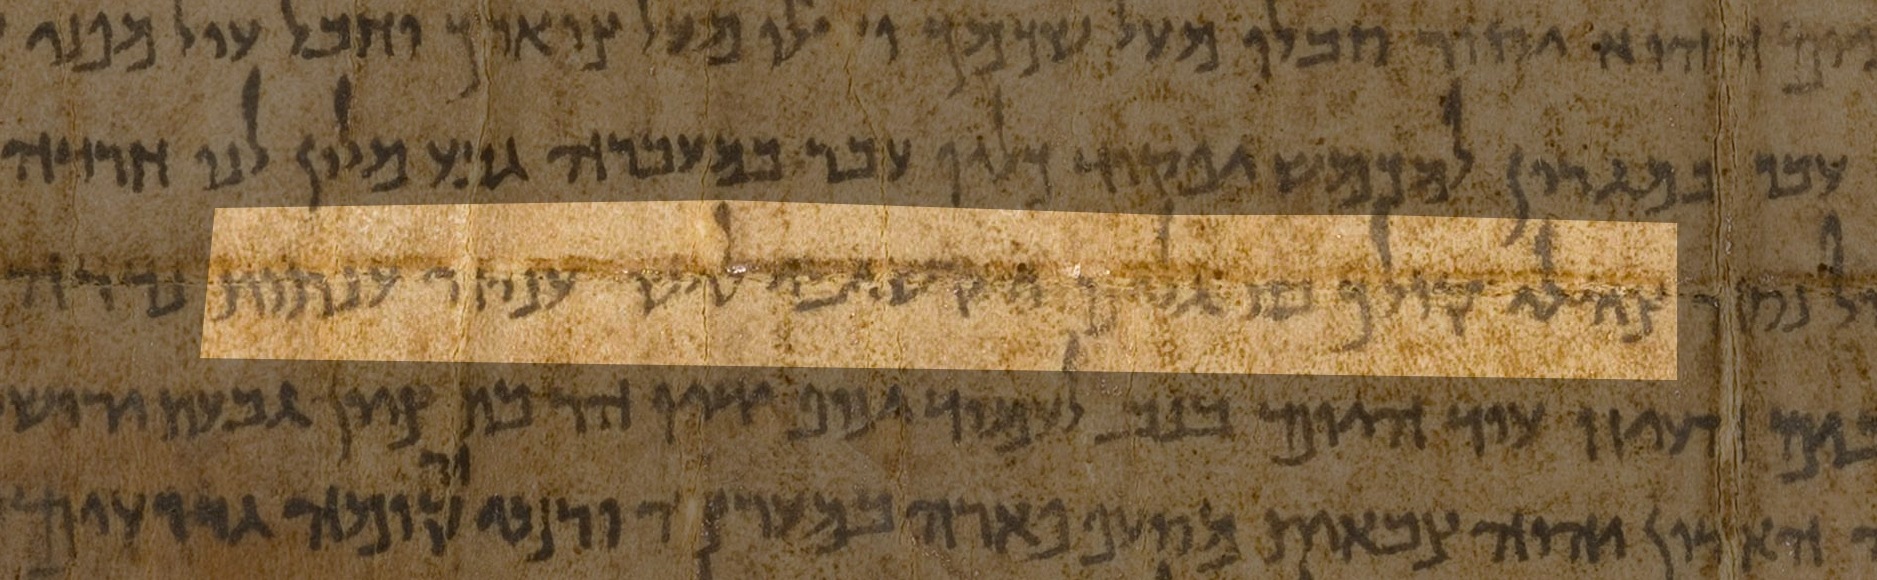 ההוא יסור סבלך מעל שכמך ועולו מעל צוארך וחבל עול מפני
עבר במגרון למכמש יפקיד כליו עבר במעברה גבע מלון לנו חרדה
צהלי קולך בת גלים הקשיבי לישה עניה ענתות נדדה
עוד היום בנב לעמוד יניף ידו הר בת ציון גבעת
האדון יהוה צבאות מסעף פארה במערצה ורמי קומה גדועים